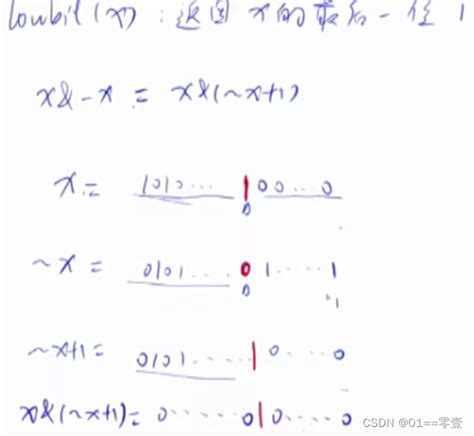 lowbit(x) : 返回 x 的最后一位 1
x&-x = x&(~x+1)
x = 1010... 1 00...0
~x = 0101... 0 1.....1
~x+1 = 0101..... 1 0....0
x&(~x+1)= 0......0 1 0.....0
CSDN @01==零壹